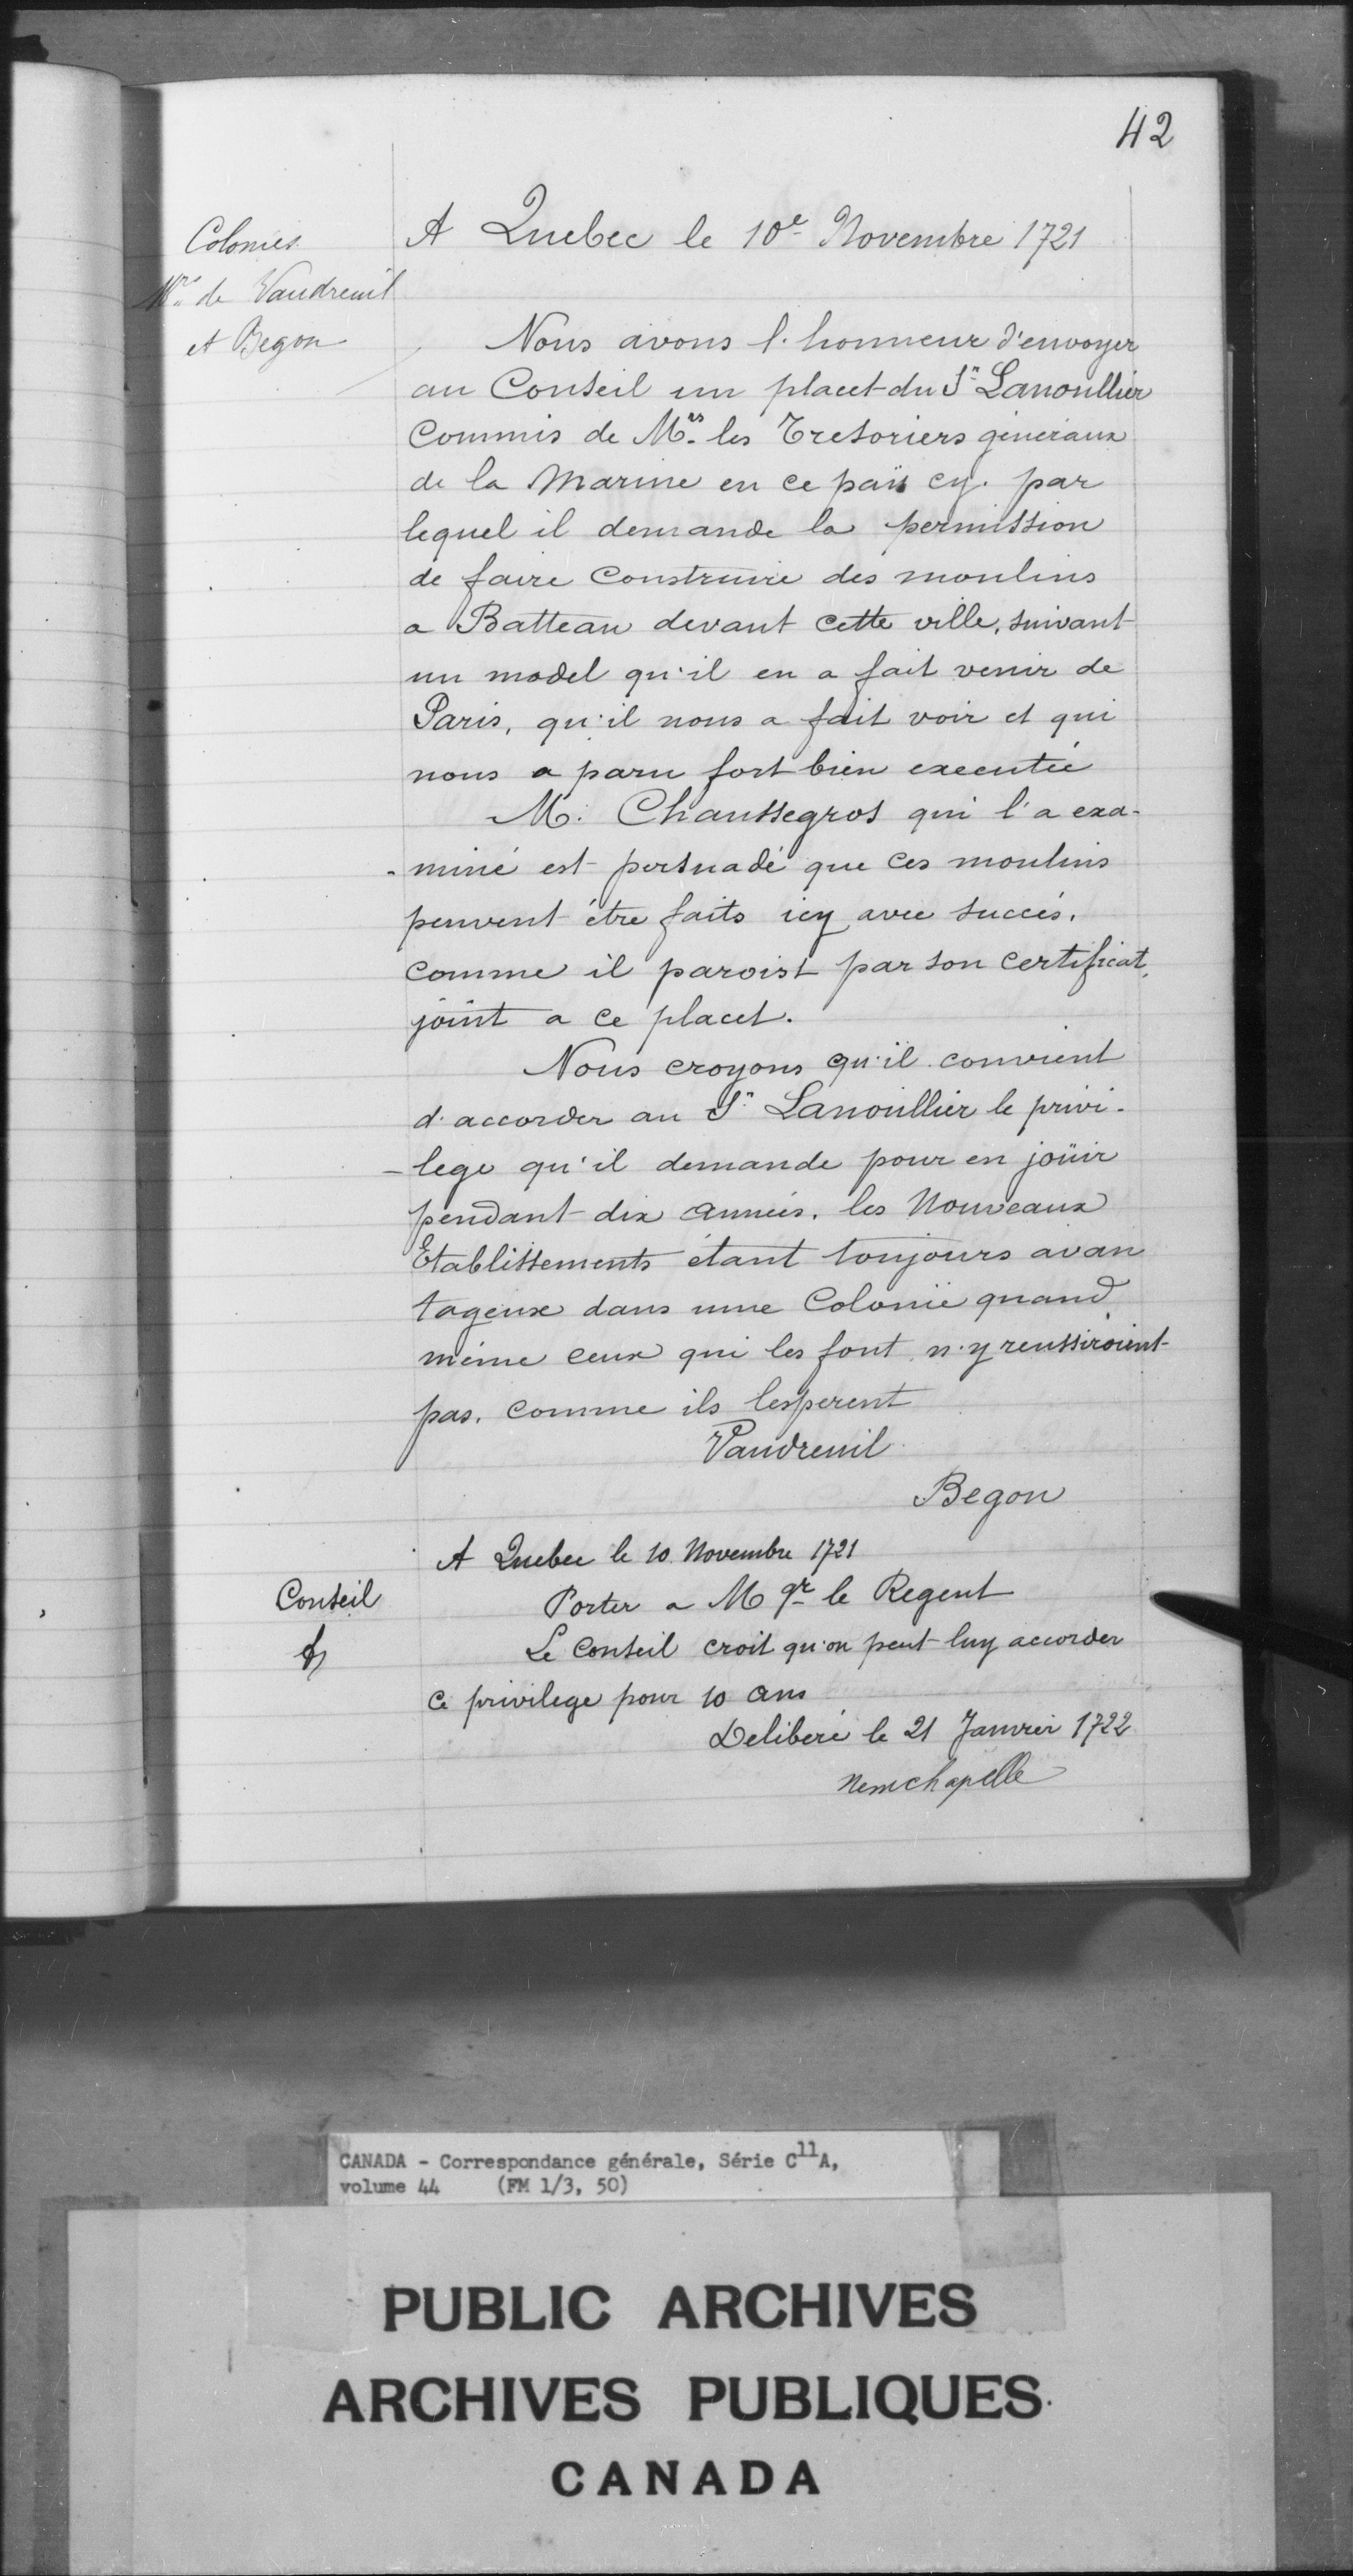 42
Colonies
Mrs de Vaudreuil
et Begon
A Quebec le 10e Novembre 1721
Nous avons l'honneur d'envoyer
au Conseil un placet du Sr Lanoullier
Commis de Mrs les Tresoriers géneraux
de la Marine en ce païs cy. par
lequel il demande la permission
de faire Construire des moulins
a Batteau devant cette ville, suivant
un model qu'il en a fait venir de
Paris, qu'il nous a fait voir et qui
nous a paru fort bien executée
M. Chaussegros qui l'a exa-
-miné est persuadé que ces moulins
peuvent être faits icy avec succés,
comme il paroist par son certificat,
joint a ce placet.
Nous croyons qu'il convient
d'accorder au Sr Lanoullier le privi-
-lege qu'il demande pour en joüir
pendant dix années, les Nouveaux
Etablissements étant toujours avan
tageux dans une Colonie quand
même ceux qui les font n'y reussiroient
pas, comme ils lesperent
Vaudreuil
Begon
A Quebec le 10 Novembre 1721
Conseil
Porter a M gr le Regent
Le Conseil croit qu'on peut luy accorder
ce privilege pour 10 ans
Deliberé le 21 Janvier 1722
Neuuchapelle
CANADA - Correspondance générale, Série C11A,
volume 44 (FM 1/3, 50)
PUBLIC ARCHIVES
ARCHIVES PUBLIQUES
CANADA